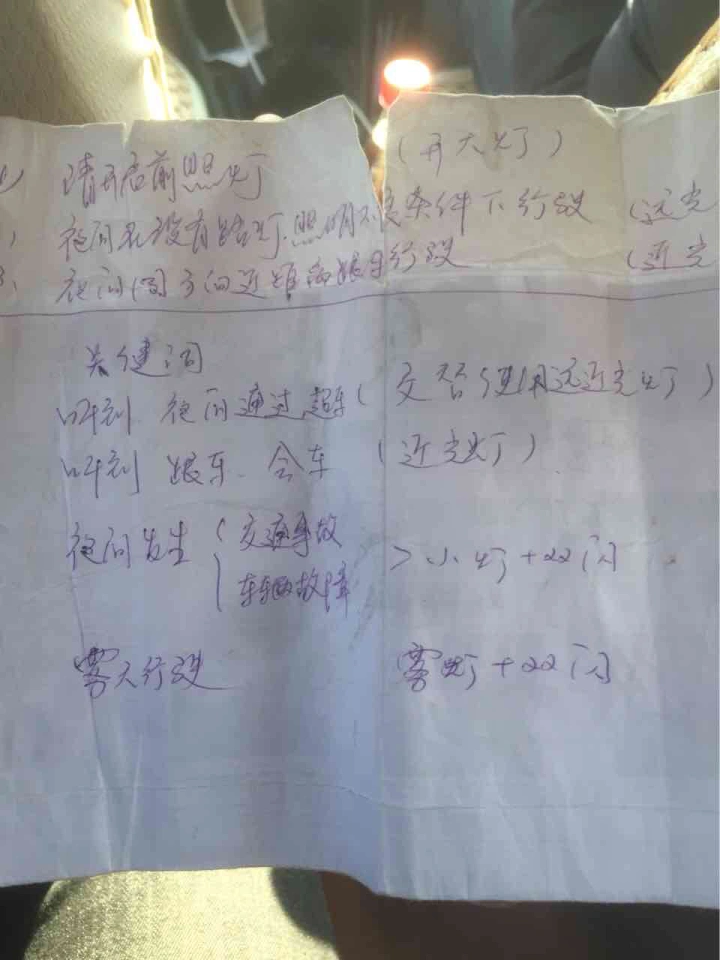 请开启前照灯 (开大灯)
夜间在没有路灯.照明不良条件下行驶 (远光
3、夜间同方向近距离跟车行驶 (近光
关键词
听到 夜间通过超车(交替使用远近光灯)
听到 跟车.会车 (近光灯)
夜间发生 { 交通事故 > 小灯+双闪
车辆故障
雾天行驶 雾灯+双闪